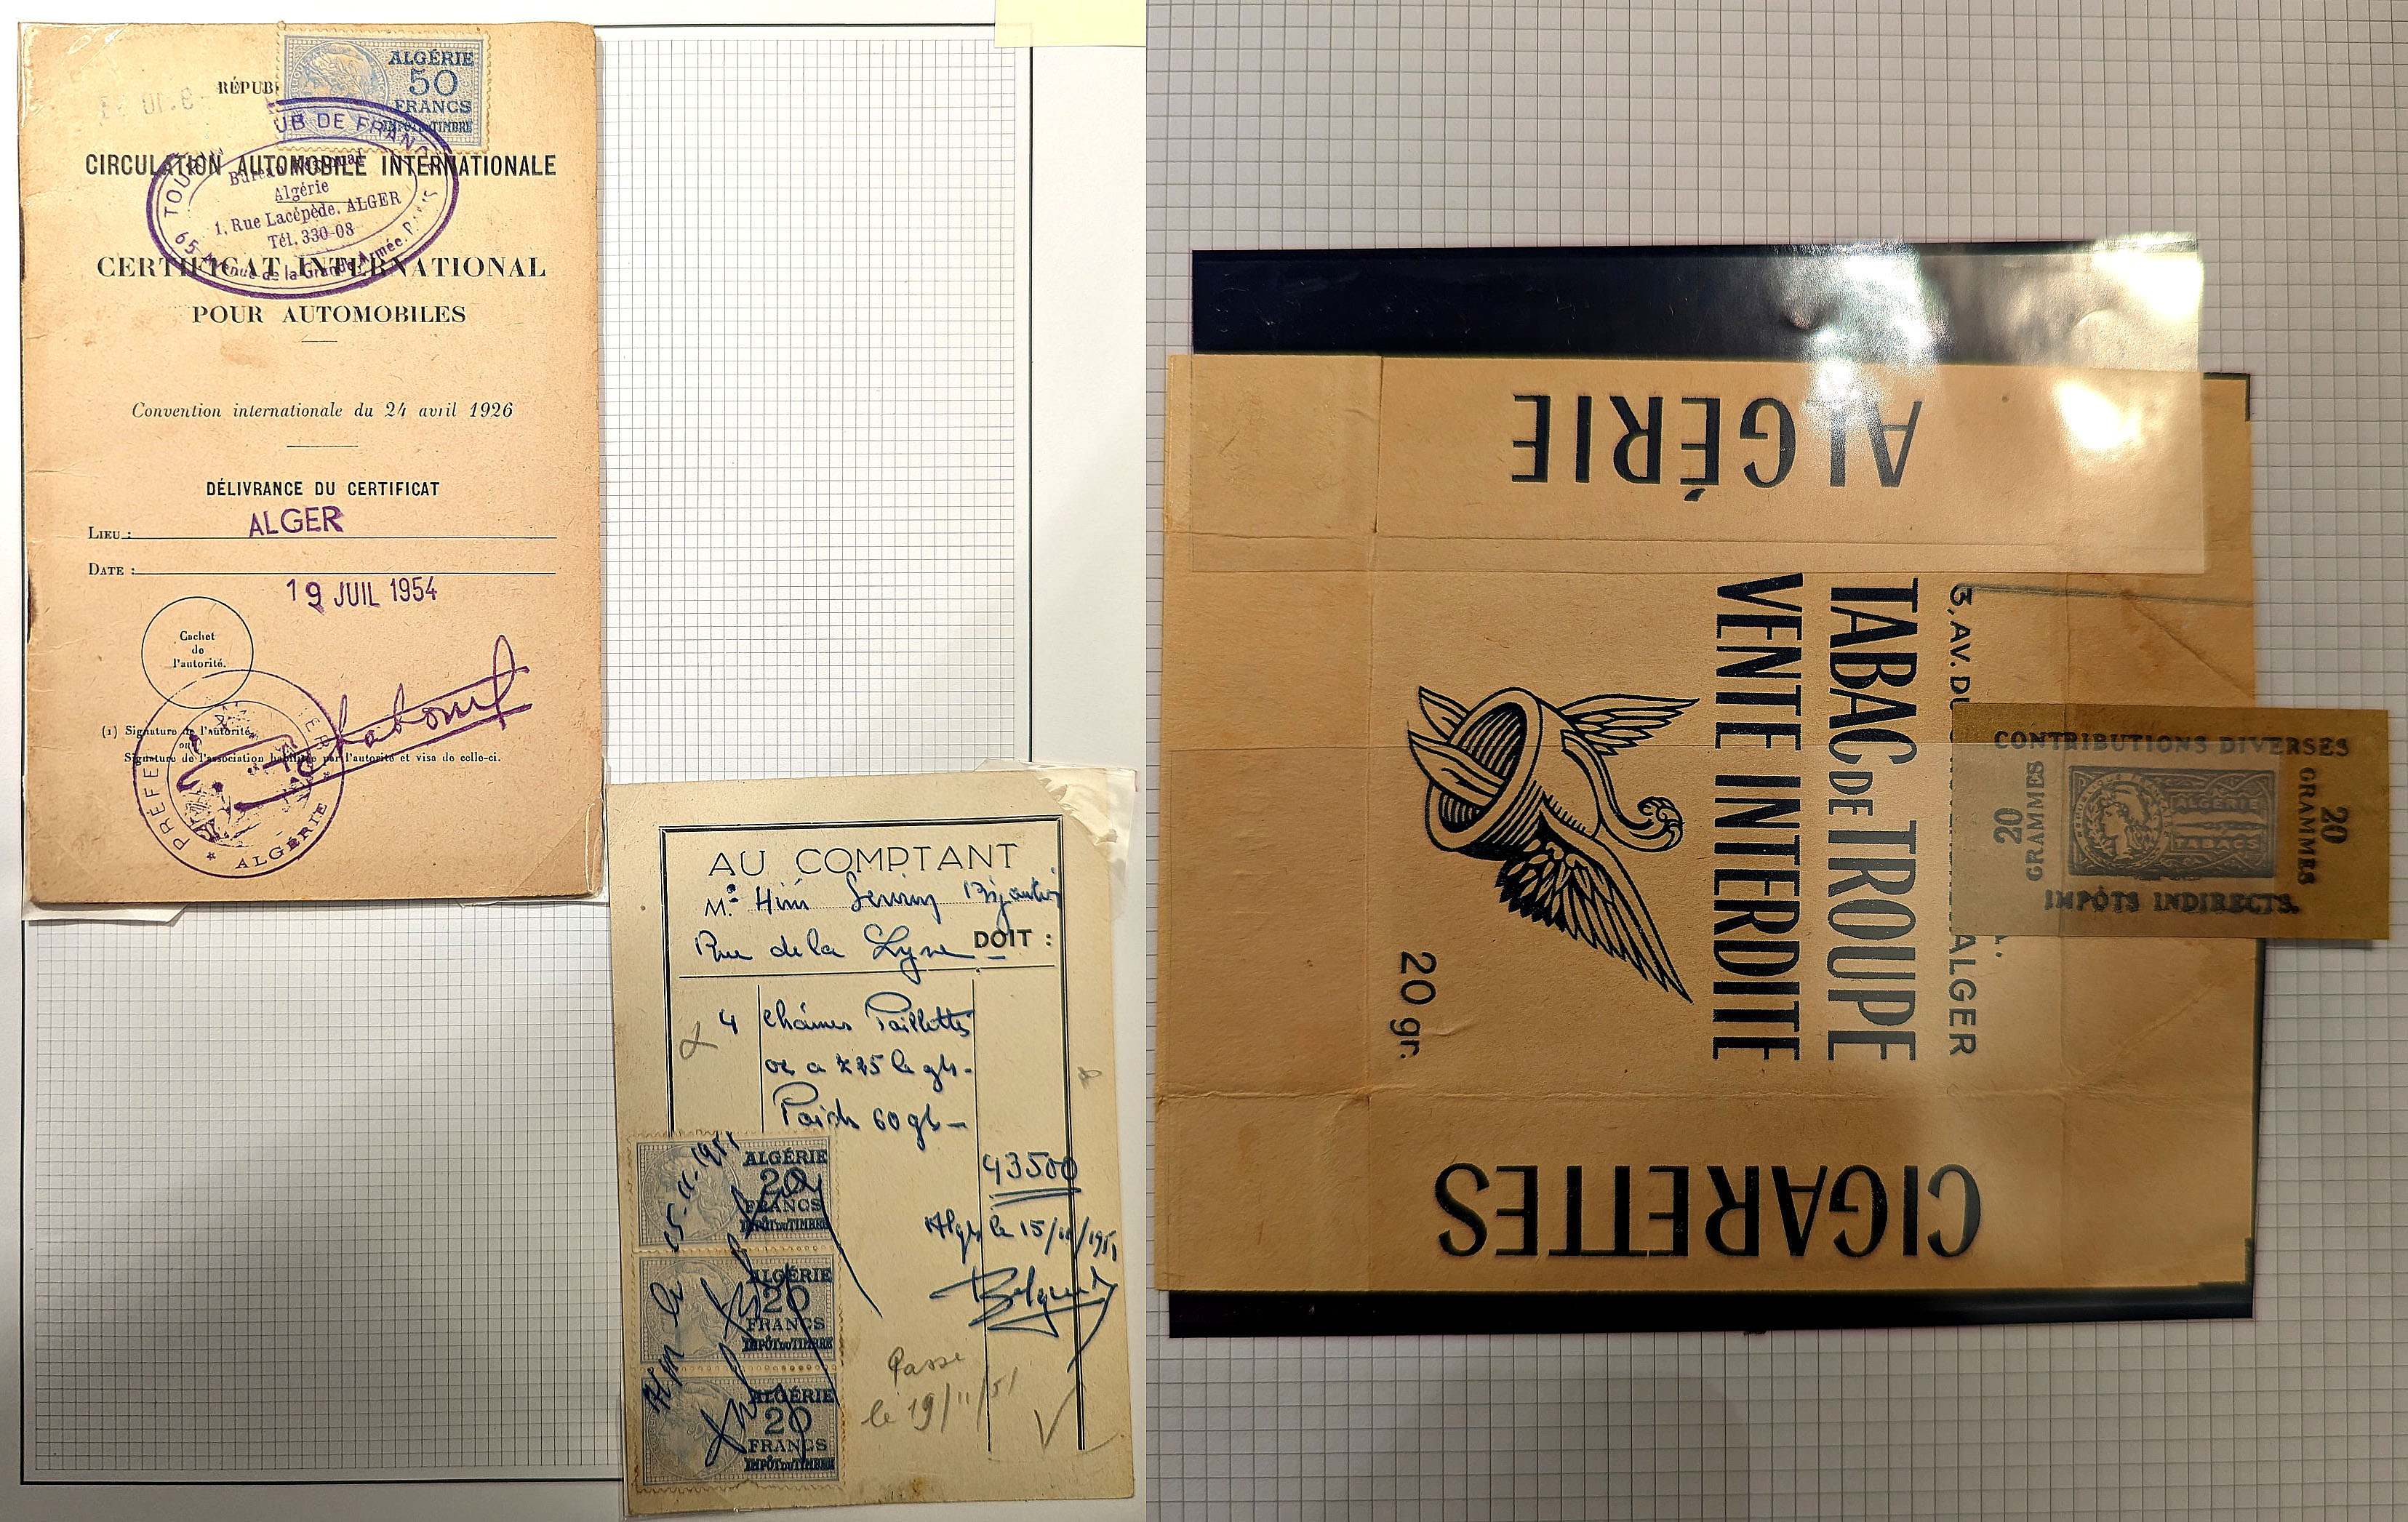 ALGÉRIE
50
FRANCS
IMPÔT DU TIMBRE
RÉPUB
CIRCULATION AUTOMOBILE INTERNATIONALE
TOUR UB DE FRANC
Bureau
Algérie
1, Rue Lacépède, ALGER
Tél. 330-08
65, Avenue de la Grande Armée, PARIS
CERTIFICAT INTERNATIONAL
POUR AUTOMOBILES
Convention internationale du 24 avril 1926
DÉLIVRANCE DU CERTIFICAT
LIEU : ALGER
DATE :
19 JUIL 1954
Cachet
de
l'autorité.
(1) Signature de l'autorité
ou
Signature de l'association habilitée par l'autorité et visa de celle-ci.
PRÉFE
ALGÉRIE
AU COMPTANT
M.
Rue de la Lyre DOIT :
4 Chaînes Paillettes
or a 725 le gr.
Poids 60 gr
43500
Alger le 15/11/1951
ALGÉRIE
20
FRANCS
IMPÔT DU TIMBRE
ALGÉRIE
20
FRANCS
IMPÔT DU TIMBRE
ALGÉRIE
20
FRANCS
IMPÔT DU TIMBRE
Passé
le 19/11/51
ALGÉRIE
3, AV. DU
ALGER
TABAC DE TROUPE
VENTE INTERDITE
20 gr.
CIGARETTES
CONTRIBUTIONS DIVERSES
20
GRAMMES
ALGÉRIE
TABACS
20
GRAMMES
IMPÔTS INDIRECTS.